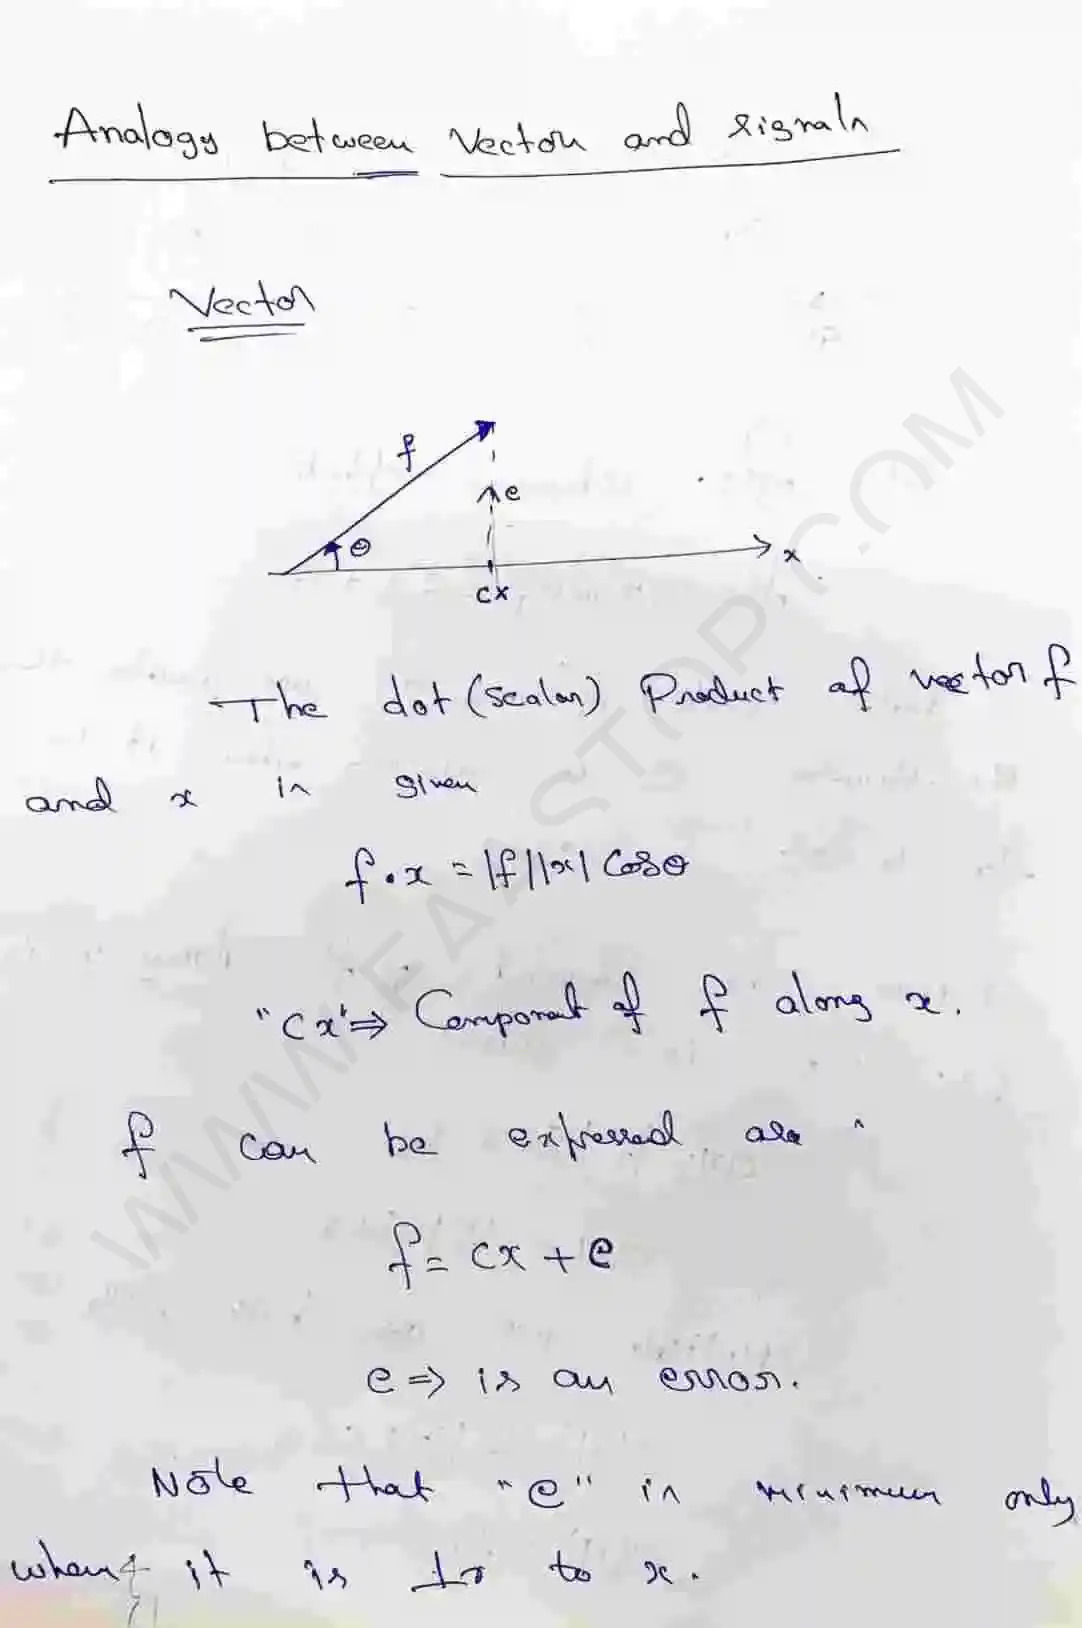 Analogy between Vector and signals
Vector
f
e
θ
x
cx
The dot (scalar) Product of vector f
and x is given
f . x = |f||x| cosθ
"cx" ⇒ Component of f along x.
f can be expressed as
f = cx + e
e ⇒ is an error.
Note that "e" is minimum only
when it is ⊥r to x.
WWW.FAASTOP.COM